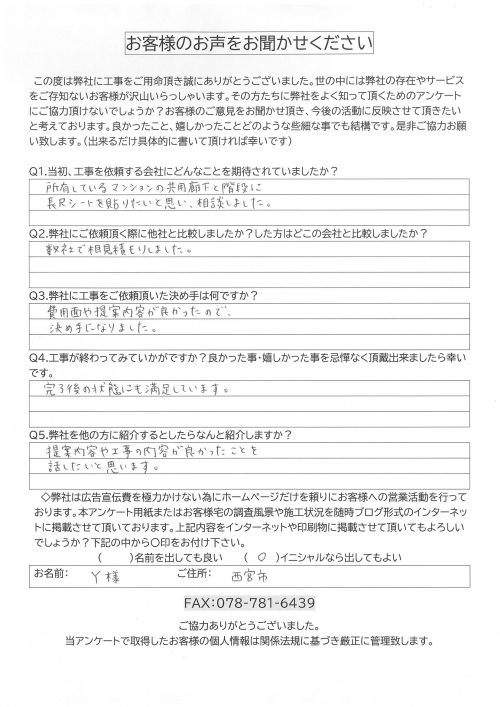 お客様のお声をお聞かせください
この度は弊社に工事をご用命頂き誠にありがとうございました。世の中には弊社の存在やサービス
をご存知ないお客様が沢山いらっしゃいます。その方たちに弊社をよく知って頂くためのアンケート
にご協力頂けないでしょうか？お客様のご意見をお聞かせ頂き、今後の活動に反映させて頂きたい
と考えております。良かったこと、嬉しかったことどのような些細な事でも結構です。是非ご協力お願
い致します。（出来るだけ具体的に書いて頂ければ幸いです）
Q1.当初、工事を依頼する会社にどんなことを期待されていましたか？
所有しているマンションの共用廊下と階段に
長尺シートを貼りたいと思い、相談しました。
Q2.弊社にご依頼頂く際に他社と比較しましたか？した方はどこの会社と比較しましたか？
数社で相見積もりしました。
Q3.弊社に工事をご依頼頂いた決め手は何ですか？
費用面や提案内容が良かったので、
決め手になりました。
Q4.工事が終わってみていかがですか？良かった事・嬉しかった事を忌憚なく頂戴出来ましたら幸い
です。
完了後の状態にも満足しています。
Q5.弊社を他の方に紹介するとしたらなんと紹介しますか？
提案内容や工事の内容が良かったことを
話したいと思います。
◇弊社は広告宣伝費を極力かけない為にホームページだけを頼りにお客様への営業活動を行って
おります。本アンケート用紙またはお客様宅の調査風景や施工状況を随時ブログ形式のインターネッ
トに掲載させて頂いております。上記内容をインターネットや印刷物に掲載させて頂いてもよろしい
でしょうか？下記の中から〇印をお付け下さい。
（　　）名前を出しても良い　（ ○ ）イニシャルなら出してもよい
お名前：　Y様　ご住所：　西宮市
FAX：078-781-6439
ご協力ありがとうございました。
当アンケートで取得したお客様の個人情報は関係法規に基づき厳正に管理致します。